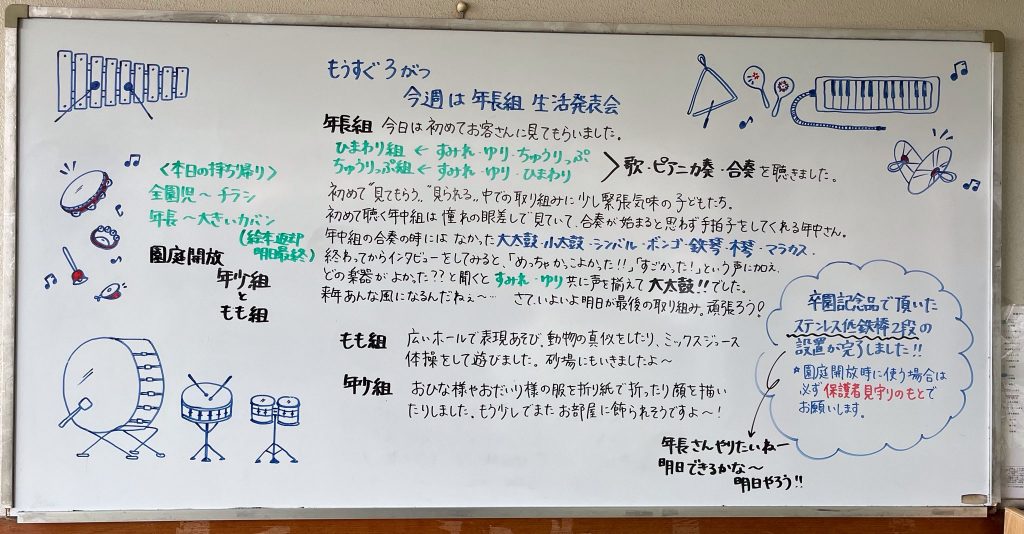 もうすぐ3がつ
今週は年長組 生活発表会
年長組 今日は初めてお客さんに見てもらいました。
ひまわり組 ← すみれ・ゆり・ちゅうりっぷ
ちゅうりっぷ組 ← すみれ・ゆり・ひまわり
歌・ピアニカ奏・合奏を聴きました。
初めて"見てもらう""見られる"中での取り組みに少し緊張気味の子どもたち。
初めて聴く年中組は憧れの眼差しで見ていて、合奏が始まると思わず手拍子をしてくれる年中さん。
年中組の合奏の時にはなかった大太鼓・小太鼓・シンバル・ボンゴ・鉄琴・木琴・マラカス。
終わってからインタビューをしてみると、「めっちゃかっこよかった!!」「すごかった!」という声に加え、
どの楽器がよかった??と聞くとすみれ・ゆり共に声を揃えて大太鼓!!でした。
来年あんな風になるんだねぇ〜… さて、いよいよ明日が最後の取り組み。頑張ろう!
もも組 広いホールで表現あそび、動物の真似をしたり、ミックスジュース
体操をして遊びました。砂場にもいきましたよ〜
年少組 おひな様やおだいり様の服を折り紙で折ったり顔を描い
たりしました。もう少しでまたお部屋に飾られそうですよ〜!
<本日の持ち帰り>
全園児〜チラシ
年長〜大きいカバン
(絵本返却
明日最終)
園庭開放
年少組
と
もも組
卒園記念品で頂いた
ステンレス低鉄棒2段の
設置が完了しました!!
*園庭開放時に使う場合は
必ず保護者見守りのもとで
お願いします。
年長さんやりたいねー
明日できるかな〜
明日やろう!!